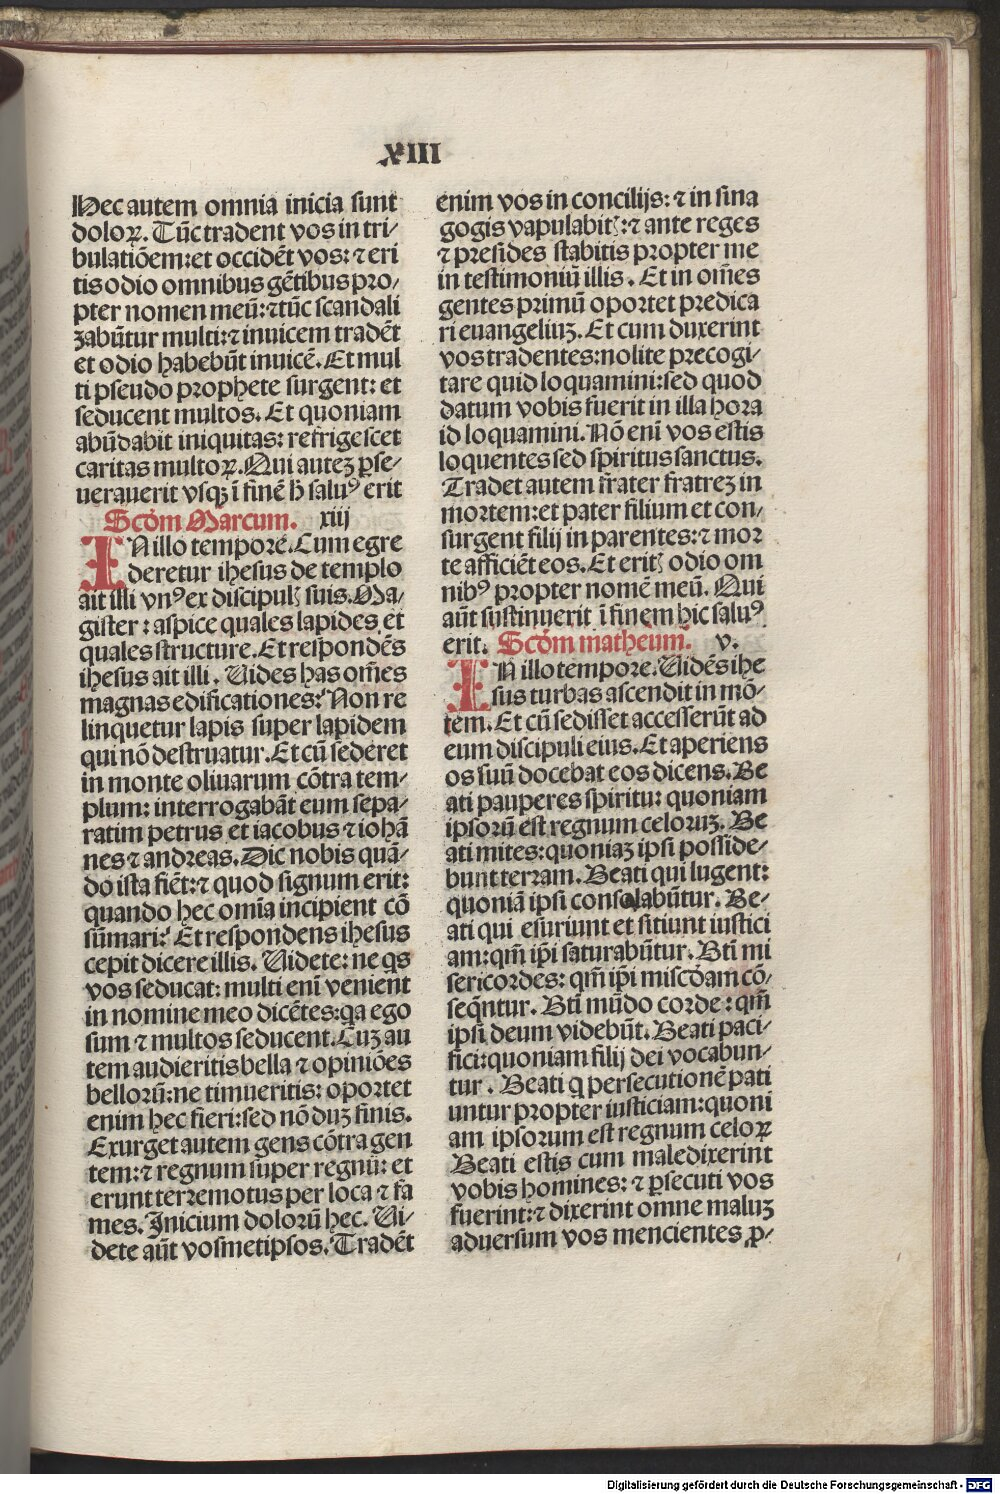 XIII
Hec autem omnia inicia sunt
doloꝝ. Tūc tradent vos in tri⸗
bulatiōem: et occidēt vos: ⁊ eri
tis odio omnibus gētibus pro⸗
pter nomen meū: ⁊ tūc scandali
zabūtur multi: ⁊ inuicem tradēt
et odio habebūt inuicē. Et mul
ti pseudo prophete surgent: et
seducent multos. Et quoniam
abūdabit iniquitas: refrigescet
caritas multoꝝ. Qui auteꝫ ꝑse⸗
uerauerit vsqꝫ ī finē h̄ saluꝰ erit
Scḋm Marcum. xiij
IN illo tempore. Cum egre
deretur ihesus de templo
ait illi vnꝰ ex discipul᷒ suis. Ma⸗
gister: aspice quales lapides et
quales structure. Et respondēs
ihesus ait illi. Uides has om̄es
magnas edificationes? Non re
linquetur lapis super lapidem
qui nō destruatur. Et cū sederet
in monte oliuarum cōtra tem⸗
plum: interrogabāt eum sepa⸗
ratim petrus et iacobus ⁊ iohā
nes ⁊ andreas. Dic nobis quā⸗
do ista fiēt: ⁊ quod signum erit:
quando hec om̄ia incipient cō
sūmari? Et respondens ihesus
cepit dicere illis. Uidete: ne qs
vos seducat: multi eni venient
in nomine meo dicētes: qa ego
sum ⁊ multos seducent. Cuꝫ au
tem audieritis bella ⁊ opiniōes
bellorū: ne timueritis: oportet
enim hec fieri: sed nō duꝫ finis.
Exurget autem gens cōtra gen
tem: ⁊ regnum super regnū: et
erunt terremotus per loca ⁊ fa
mes. Inicium dolorū hec. Ui⸗
dete aūt vosmetipsos. Tradēt
enim vos in concilijs: ⁊ in sina
gogis vapulabit᷒: ⁊ ante reges
⁊ presides stabitis propter me
in testimoniū illis. Et in om̄es
gentes primū oportet predica
ri euangeliuꝫ. Et cum duxerint
vos tradentes: nolite precogi⸗
tare quid loquamini: sed quod
datum vobis fuerit in illa hora
id loquamini. Nō eni vos estis
loquentes sed spiritus sanctus.
Tradet autem frater fratreꝫ in
mortem: et pater filium et con⸗
surgent filij in parentes: ⁊ mor
te afficiēt eos. Et erit᷒ odio om
nibꝰ propter nomē meū. Qui
aūt sustinuerit ī finem hic saluꝰ
erit. Scḋm matheum. v.
IN illo tempore. Uidēs ihe
sus turbas ascendit in mō⸗
tem. Et cū sedisset accesserūt ad
eum discipuli eius. Et aperiens
os suū docebat eos dicens. Be
ati pauperes spiritu: quoniam
ipsorū est regnum celoruꝫ. Be
ati mites: quoniaꝫ ipsi posside⸗
bunt terram. Beati qui lugent:
quoniā ipsi consolabūtur. Be⸗
ati qui esuriunt et sitiunt iustici
am: qm̄ ip̄i saturabūtur. Bt̄i mi
sericordes: qm̄ ip̄i miscḋam cō⸗
seqn̄tur. Bt̄i mūdo corde: qm̄
ipsi deum videbūt. Beati paci⸗
fici: quoniam filij dei vocabun⸗
tur. Beati q persecutionē pati
untur propter iusticiam: quoni
am ipsorum est regnum celoꝝ
Beati estis cum maledixerint
vobis homines: ⁊ ꝑsecuti vos
fuerint: ⁊ dixerint omne maluꝫ
aduersum vos mencientes ꝓ⸗
Digitalisierung gefördert durch die Deutsche Forschungsgemeinschaft - DFG